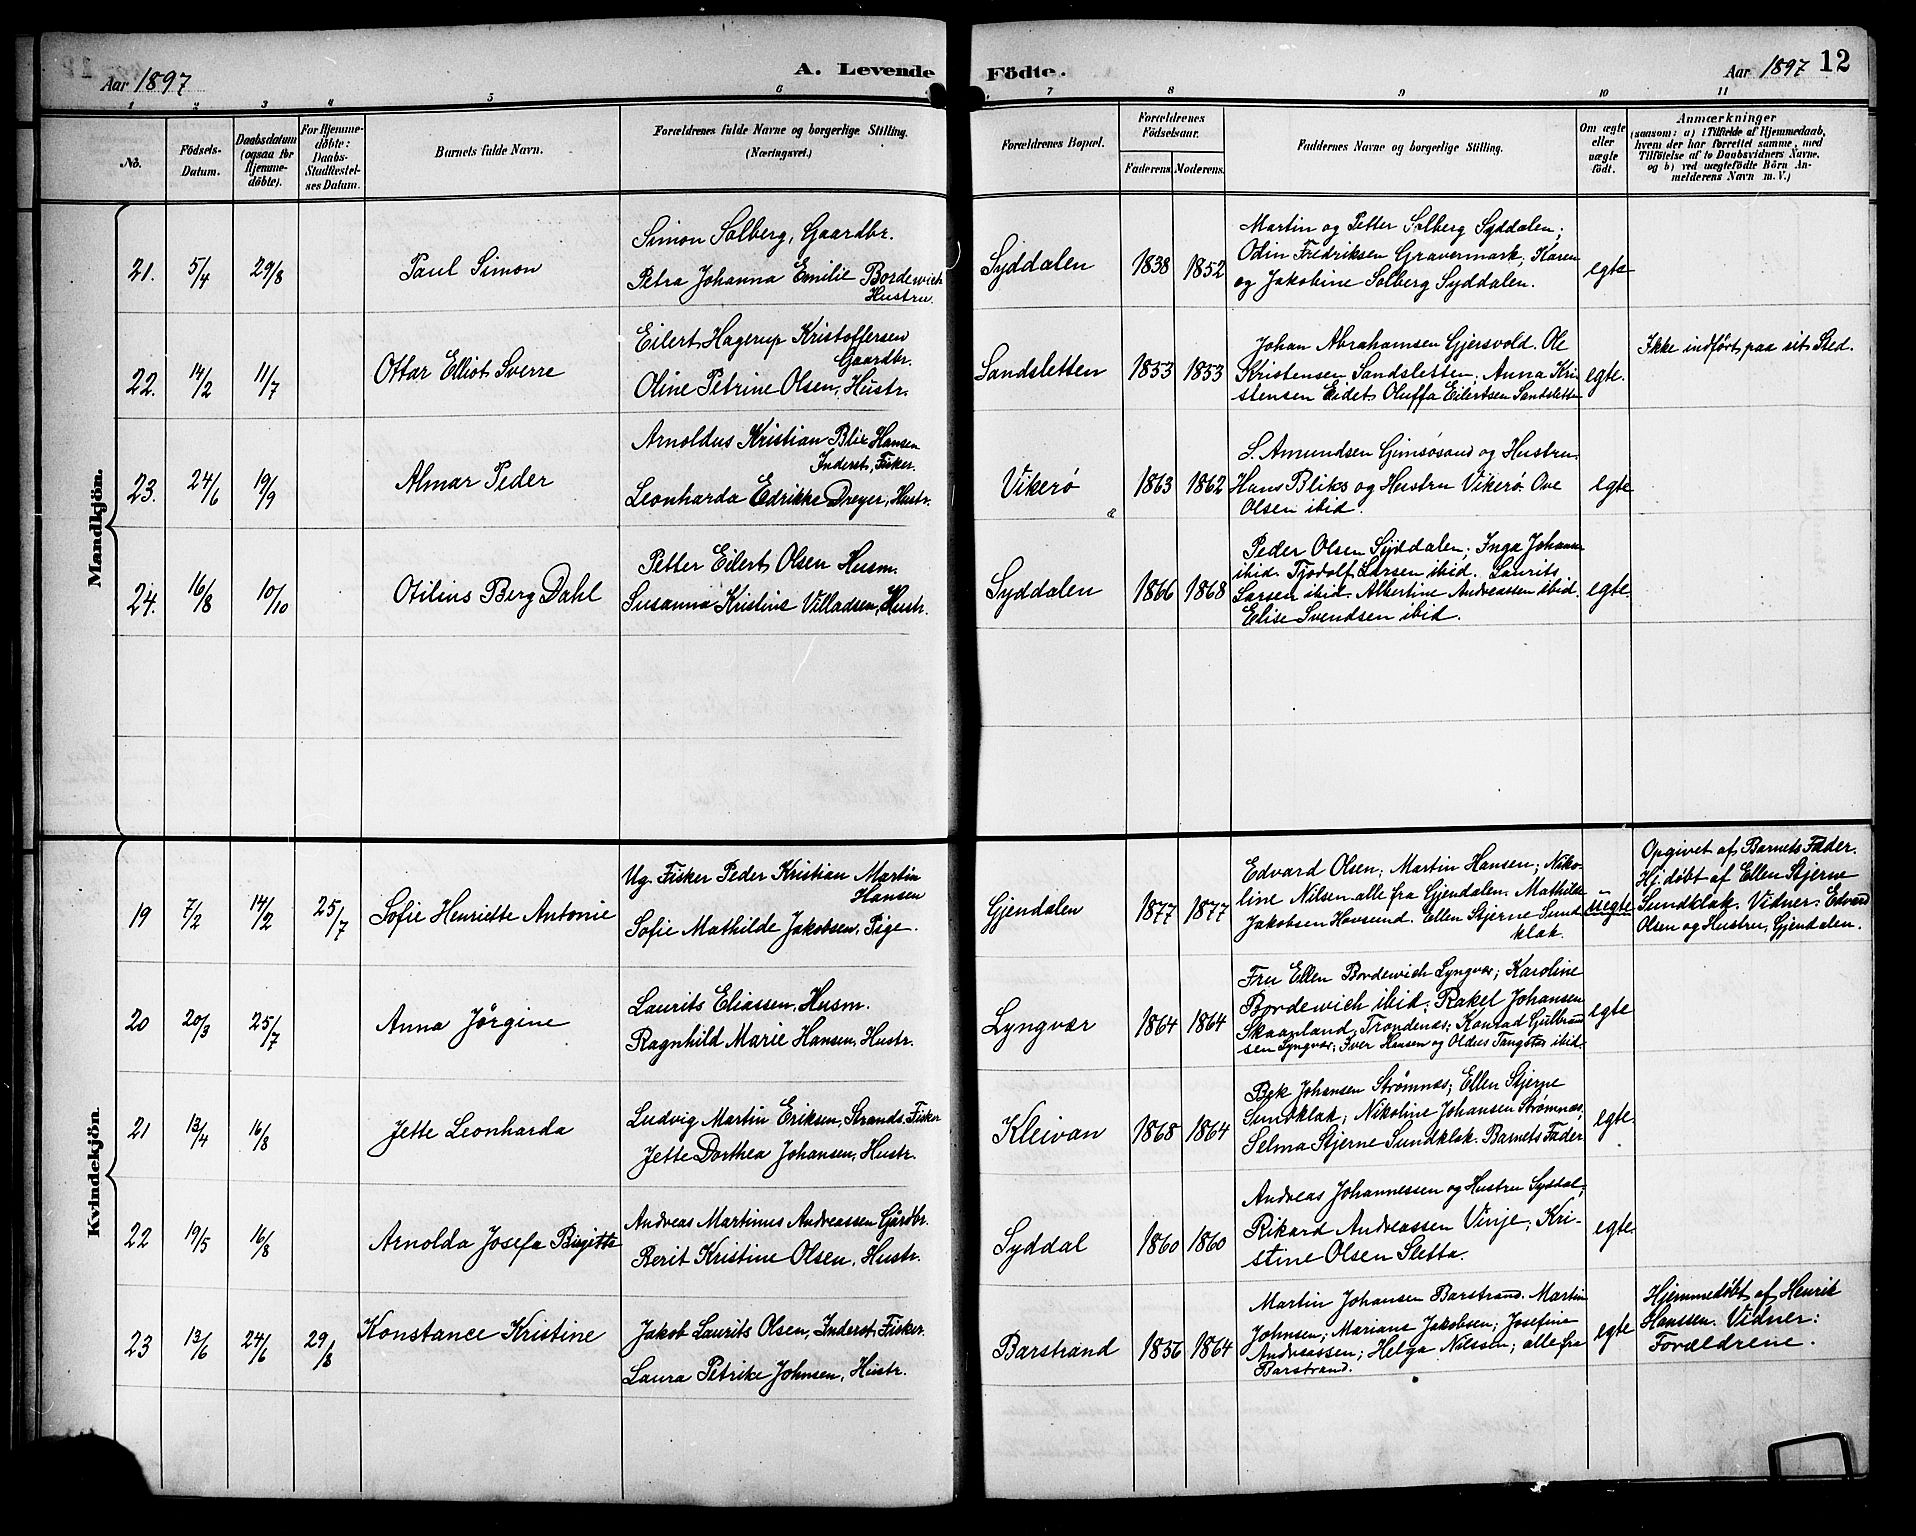 Aar 1897
A. Levende
Födte.
Aar 1897 12
1 2 3 4 5 6
7 8 9 10 11
No.
Födsels-
Datum.
Daabsdatum
(ogsaa for
Hjemme-
döbte).
For Hjemme-
döbte:
Daabs-
Stadfæstel-
ses Datum.
Barnets fulde Navn.
Forældrenes fulde Navne og borgerlige Stilling.
(Næringsvei.)
Forældrenes Bopæl.
Forældrenes
Födselsaar.
Faderens.
Moderens.
Faddernes Navne og borgerlige Stilling.
Om ægte
eller
uægte
födt.
Anmærkninger
(saasom: a) i Tilfælde af Hjemmedaab,
hvem der har forrettet samme, med
Tilföielse af to Daabsvidners Navne,
og b) ved uægtefödte Börn An-
melderens Navn m. V.)
Mandkjön.
21. 5/4 29/8
Paul Simon
Simon Solberg, Gaardbr.
Petra Johanna Emilie Bordewich
Hustru.
Syddalen 1838 1852
Martin og Petter Solberg Syddalen;
Odin Fredriksen Gravermark, Karen
og Jakobine Solberg Syddalen.
egte
22. 14/2 11/7
Ottar Elliot Sverre
Eilert Hagerup Kristoffersen
Gaardbr.
Oline Petrine Olsen, Hustr.
Sandsletten 1853 1853
Johan Abrahamsen Gjersvold. Ole
Kristensen Sandsletten, Anna Kri
stensen Eidet Oluffa Eilertsen Sandsletten
egte.
Ikke indført paa sit Sted.
23. 24/6 19/9
Almar Peder
Arnoldus Kristian Blix Hansen
Inderst, Fisker.
Leonharda Edrikke Dreyer, Hustr.
Vikerø 1863 1862
S. Amundsen Gimsøsand og Hustru.
Hans Bliks og Hustru Vikerø. Ove
Olsen ibid.
egte
24. 16/8 10/10
Otilius Berg Dahl
Petter Eilert Olsen Husm.
Susanna Kristine Villadsen, Hustr.
Syddalen 1866 1868
Peder Olsen Syddalen; Inga Johanne
ibid. Tjodolf Larsen ibid. Laurits
Larsen ibid. Albertine Andreassen ibid.
Elise Svendsen ibid.
egte.
Kvindekjön.
19 7/2 14/2 25/7
Sofie Henriette Antonie
Ug. Fisker Peder Kristian Martin
Hansen
Sofie Mathilde Jakobsen, Pige.
Gjendalen 1877 1877
Edvard Olsen; Martin Hansen; Niko-
line Nilsen alle fra Gjendalen. Mathilde
Jakobsen Hovsund. Ellen Stjerne Sund
klak.
uegte
Opgivet af Barnets Fader.
Hj.døbt af Ellen Stjerne
Sundklak. Vidner. Edvard
Olsen og Hustru, Gjendalen.
20 20/3 25/7
Anna Jörgine
Laurits Eliassen, Husm.
Ragnhild Marie Hansen, Hustr.
Lyngvær 1864 1864
Fru Ellen Bordewich Lyngvær; Karoline
Bordewich ibid; Rakel Johansen
Skaanland, Trondenæs; Konrad Gulbrand
sen Lyngvær; Iver Hansen og Oldus Tangstad ibid.
egte
21 13/4 16/8
Jette Leonharda
Ludvig Martin Eriksen, Strands. Fisker
Jette Dorthea Johansen, Hustr.
Kleivan 1868 1864
Bek Johansen Strømnæs; Ellen Stjerne
Sundklak; Nikoline Johansen Strømnæs;
Selma Stjerne Sundklak. Barnets Fader
egte.
22 19/5 16/8
Arnolda Josefa Birgitte
Andreas Martinus Andreassen Gårdbr.
Berit Kristine Olsen, Hustr.
Syddal 1860 1860
Andreas Johannessen og Hustru Syddal;
Rikard Andreassen Vinje; Kri-
stine Olsen Sletta.
egte.
23 13/6 24/6 29/8
Konstance Kristine
Jakob Laurits Olsen, Inderst, Fisker.
Laura Petrike Johnsen, Hustr.
Barstrand 1856 1864
Martin Johansen Barstrand. Martin
Johnsen; Mariane Jakobsen; Josefine
Andreassen; Helga Nilssen; alle fra
Barstrand.
egte
Hjemmedøbt af Henrik
Hanssen. Vidner:
Forældrene.